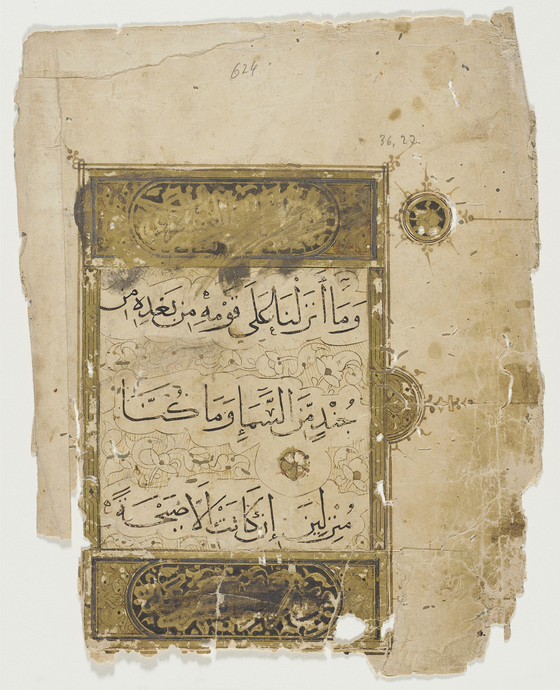 624
36, 27.
وَمَا أَنزَلْنَا عَلَى قَوْمِهِ مِن بَعْدِهِ مِن
جُنْدٍ مِّنَ السَّمَاءِ وَمَا كُنَّا
مُنزِلِينَ إِن كَانَتْ إِلَّا صَيْحَةً